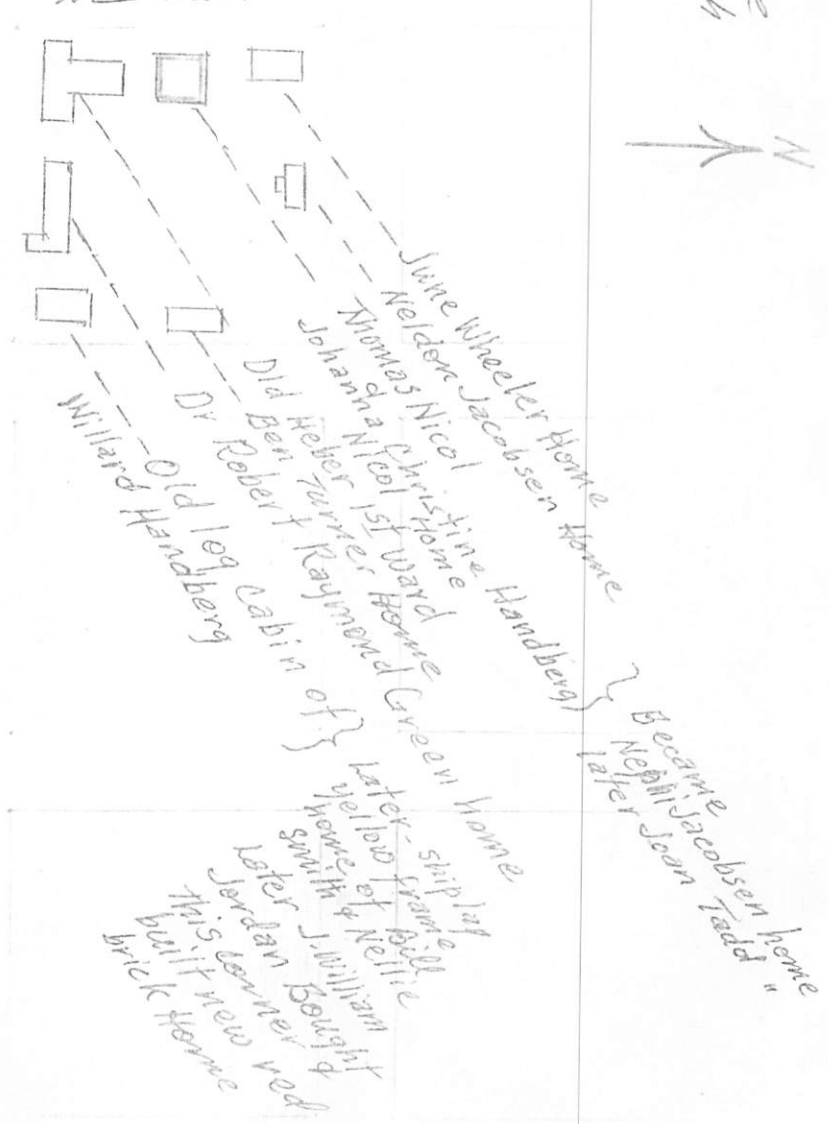 N
June Wheeler Home
Neldon Jacobsen Home
Thomas Nicol
Johanna Christine Handberg)
Nicol Home
} Became
Nephi Jacobsen home
later Joan Tadd "
Old Heber 1st Ward
Ben Turner Home
Dr Robert Raymond Green home
Old log cabin of }
Willard Handberg
Later - ship lag
yellow frame
home of Bill
Smith & Nellie
Later J. William
Jordan Bought
this corner &
built new red
brick Home